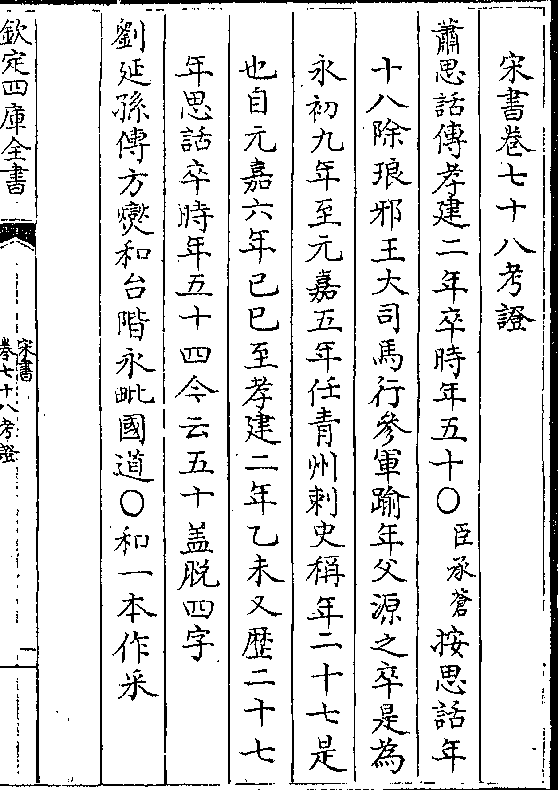 宋書卷七十八考證
蕭思話傳孝建二年卒時年五十〇臣承蒼按思話年
十八除琅邪王大司馬行參軍踰年父源之卒是為
永初九年至元嘉五年任青州刺史稱年二十七是
也自元嘉六年己巳至孝建二年乙未又歷二十七
年思話卒時年五十四今云五十蓋脫四字
劉延孫傳方爕和台階永毗國道〇和一本作采
欽定四庫全書
宋書
卷七十八考證
一